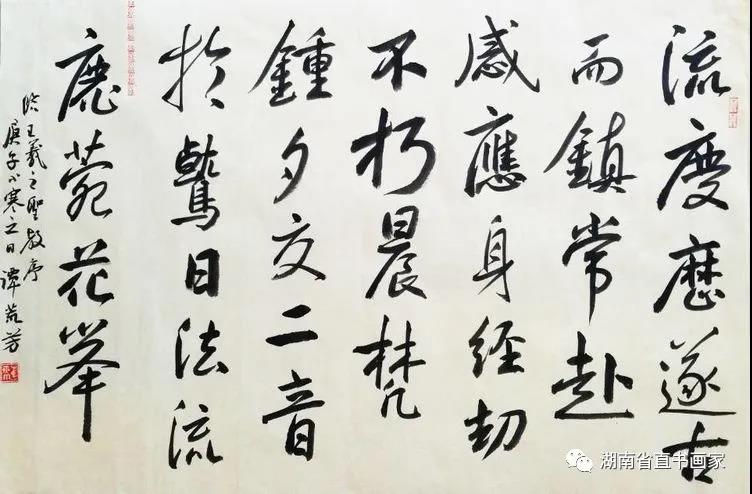 流慶歷遂古
而鎮常赴
感應身經劫
不朽晨梵
鍾夕交二音
於鷲日法流
鹿菀花峯
临王羲之聖教序
庚子小寒之日 谭芳
湖南省直书画家